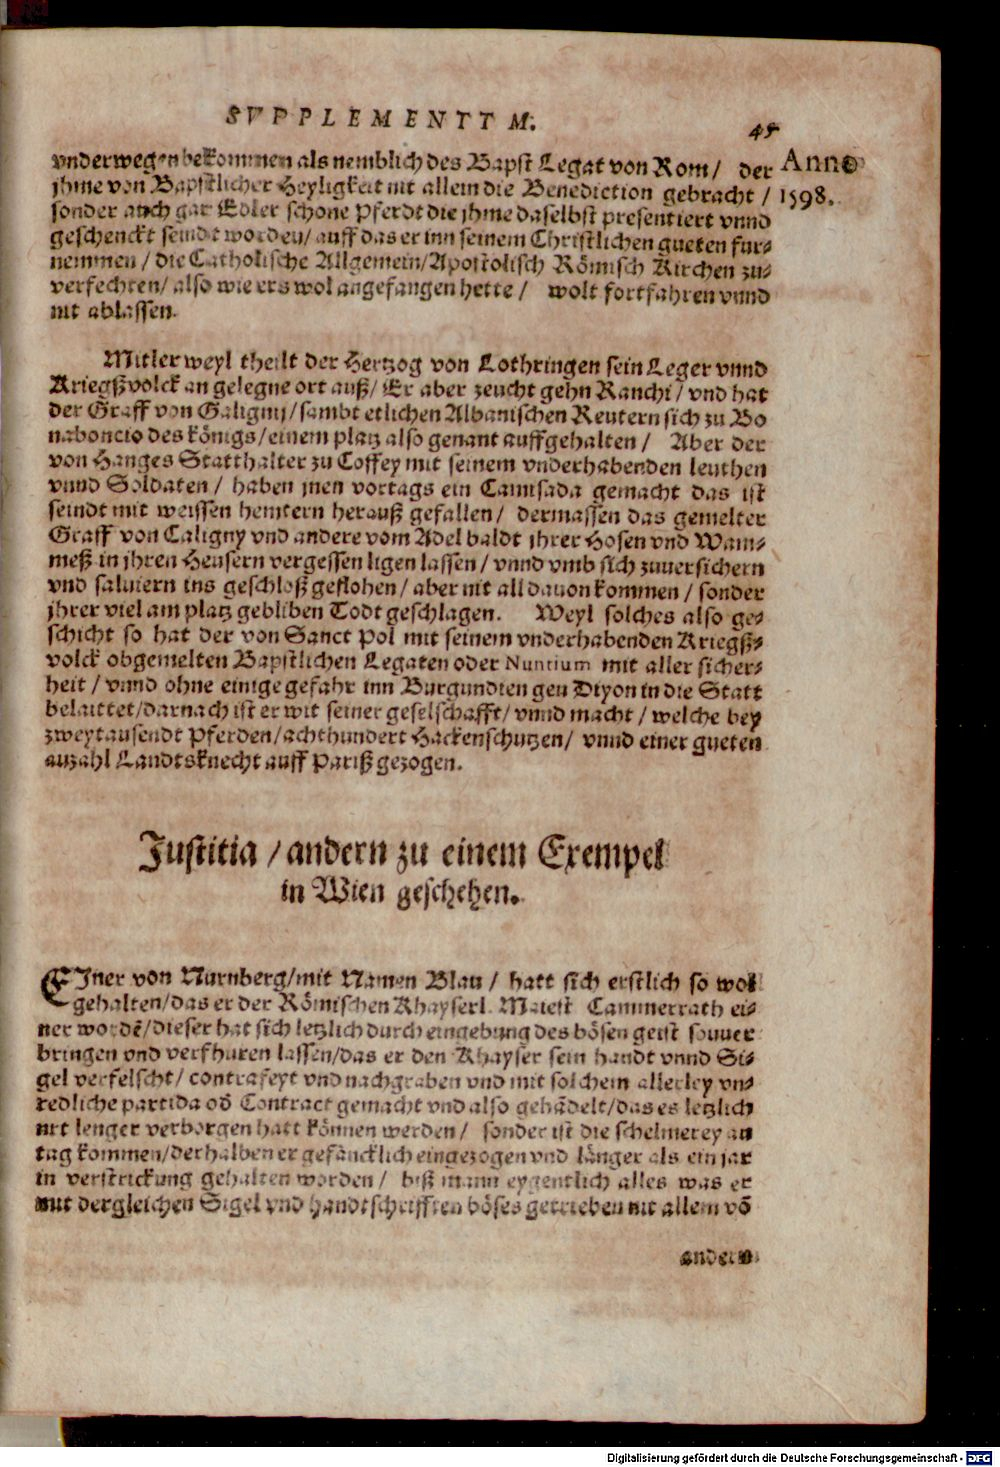 SVPPLEMENTT M.
45
vnderwegen bekommen als nemblich des Bapst Legat von Rom / der
Anno
jhme von Bapstlicher Heyligkeit nit allein die Benediction gebracht /
1598.
sonder auch gar Edler schone Pferdt die jhme daselbst presentiert vnnd
geschenckt seindt worden / auff das er inn seinem Christlichen gueten fur-
nemmen / die Catholische Allgemein / Apostolisch Römisch Kirchen zu-
verfechten / also wie ers wol angefangen hette / wolt fortfahren vnnd
nit ablassen.
Mitlerweyl theilt der Hertzog von Lothringen sein Leger vnnd
Kriegßvolck an gelegne ort auß / Er aber zeucht gehn Ranchi / vnd hat
der Graff von Galigny / sambt etlichen Albanischen Reutern sich zu Bo
naboncio des königs / einem platz also genant auffgehalten / Aber der
von Hanges Statthalter zu Coffey mit seinem vnderhabenden leuthen
vnnd Soldaten / haben jnen vortags ein Camisada gemacht das ist
seindt mit weissen hemtern herauß gefallen / dermassen das gemelter
Graff von Caligny vnd andere vom Adel baldt jhrer Hosen vnd Wam-
meß in jhren Heusern vergessen ligen lassen / vnnd vmb sich zuuersichern
vnd saluiern ins geschloß geflohen / aber nit all dauon kommen / sonder
jhrer viel am platz gebliben Todt geschlagen. Weyl solches also ge-
schicht so hat der von Sanct Pol mit seinem vnderhabenden Kriegß-
volck obgemelten Bapstlichen Legaten oder Nuntium mit aller sicher-
heit / vnnd ohne einige gefahr inn Burgundien gen Diyon in die Statt
belaittet / darnach ist er wit seiner geselschafft / vnnd macht / welche bey
zweytausendt Pferden / achthundert Hackenschutzen / vnnd einer gueten
anzahl Landtsknecht auff Pariß gezogen.
Justitia / andern zu einem Exempel
in Wien geschehen.
EJner von Nurnberg / mit Namen Blau / hatt sich erstlich so wol
gehalten / das er der Römischen Khayserl. Maiest Cammerrath ei-
ner wordē / dieser hat sich letzlich durch eingebung des bösen geist souuer
bringen vnd verfhuren lassen / das er den Khayser sein handt vnnd Si-
gel verfelscht / contrafeyt vnd nachgraben vnd mit solchem allerley vn-
redliche partida od Contract gemacht vnd also gehādelt / das es letzlich
nit lenger verborgen hatt können werden / sonder ist die schelmerey an
tag kommen / derhalben er gefäncklich eingezogen vnd länger als ein jar
in verstrickung gehalten worden / biß mann eygentlich alles was er
mit dergleichen Sigel vnd handtschrifften böses getrieben nit allein vō
andern
Digitalisierung gefördert durch die Deutsche Forschungsgemeinschaft - DFG